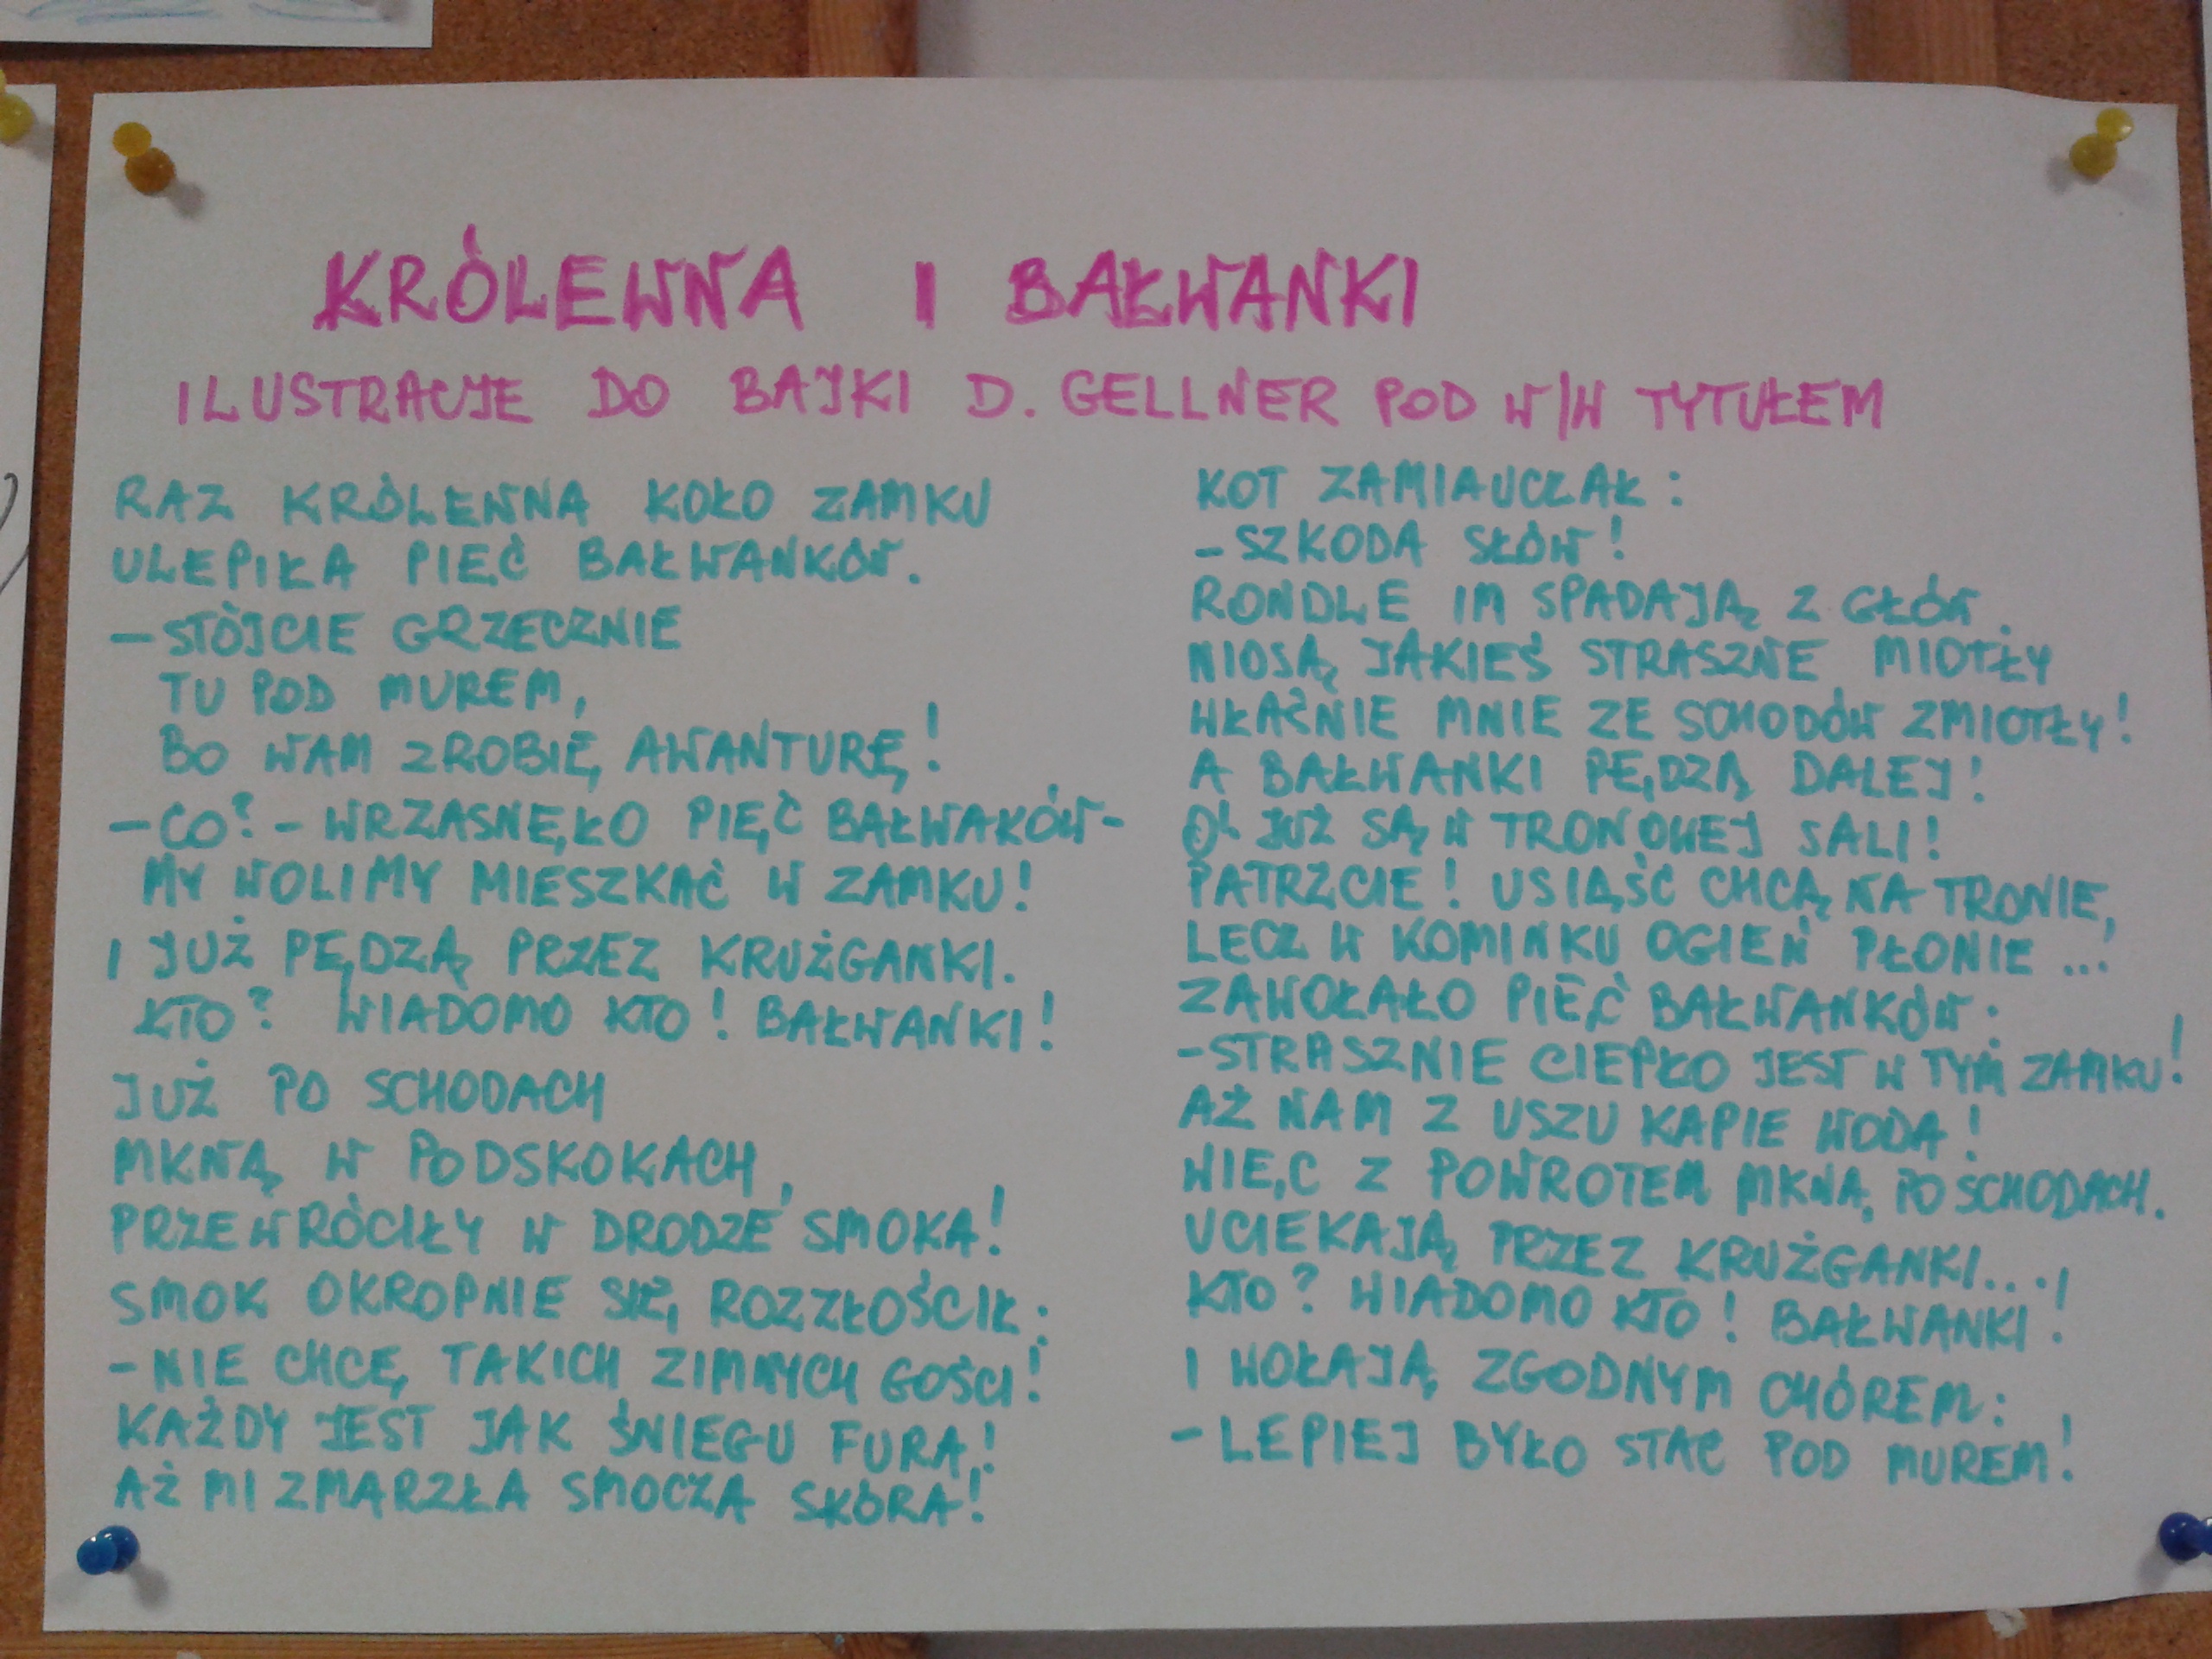 KRÓLEWNA I BAŁWANKI
ILUSTRACJE DO BAJKI D. GELLNER POD W/W TYTUŁEM
RAZ KRÓLEWNA KOŁO ZAMKU
ULEPIŁA PIĘĆ BAŁWANKÓW.
– STÓJCIE GRZECZNIE
TU POD MUREM,
BO WAM ZROBIĘ AWANTURĘ!
– CO? – WRZASNĘŁO PIĘĆ BAŁWAKÓW –
MY WOLIMY MIESZKAĆ W ZAMKU!
I JUŻ PĘDZĄ PRZEZ KRUŻGANKI.
KTO? WIADOMO KTO! BAŁWANKI!
JUŻ PO SCHODACH
MKNĄ W PODSKOKACH,
PRZEWRÓCIŁY W DRODZE SMOKA!
SMOK OKROPNIE SIĘ ROZZŁOŚCIŁ:
– NIE CHCĘ TAKICH ZIMNYCH GOŚCI!
KAŻDY JEST JAK ŚNIEGU FURA!
AŻ MI ZMARZŁA SMOCZA SKÓRA!
KOT ZAMIAUCZAŁ:
– SZKODA SŁÓW!
RONDLE IM SPADAJĄ Z GŁÓW.
NIOSĄ JAKIEŚ STRASZNE MIOTŁY
WŁAŚNIE MNIE ZE SCHODÓW ZMIOTŁY!
A BAŁWANKI PĘDZĄ DALEJ!
O! JUŻ SĄ W TRONOWEJ SALI!
PATRZCIE! USIĄŚĆ CHCĄ NA TRONIE,
LECZ W KOMINKU OGIEŃ PŁONIE...!
ZAWOŁAŁO PIĘĆ BAŁWANKÓW:
– STRASZNIE CIEPŁO JEST W TYM ZAMKU!
AŻ NAM Z USZU KAPIE WODA!
WIĘC Z POWROTEM MKNĄ PO SCHODACH.
UCIEKAJĄ PRZEZ KRUŻGANKI...
KTO? WIADOMO KTO! BAŁWANKI!
I WOŁAJĄ ZGODNYM CHÓREM:
– LEPIEJ BYŁO STAĆ POD MUREM!